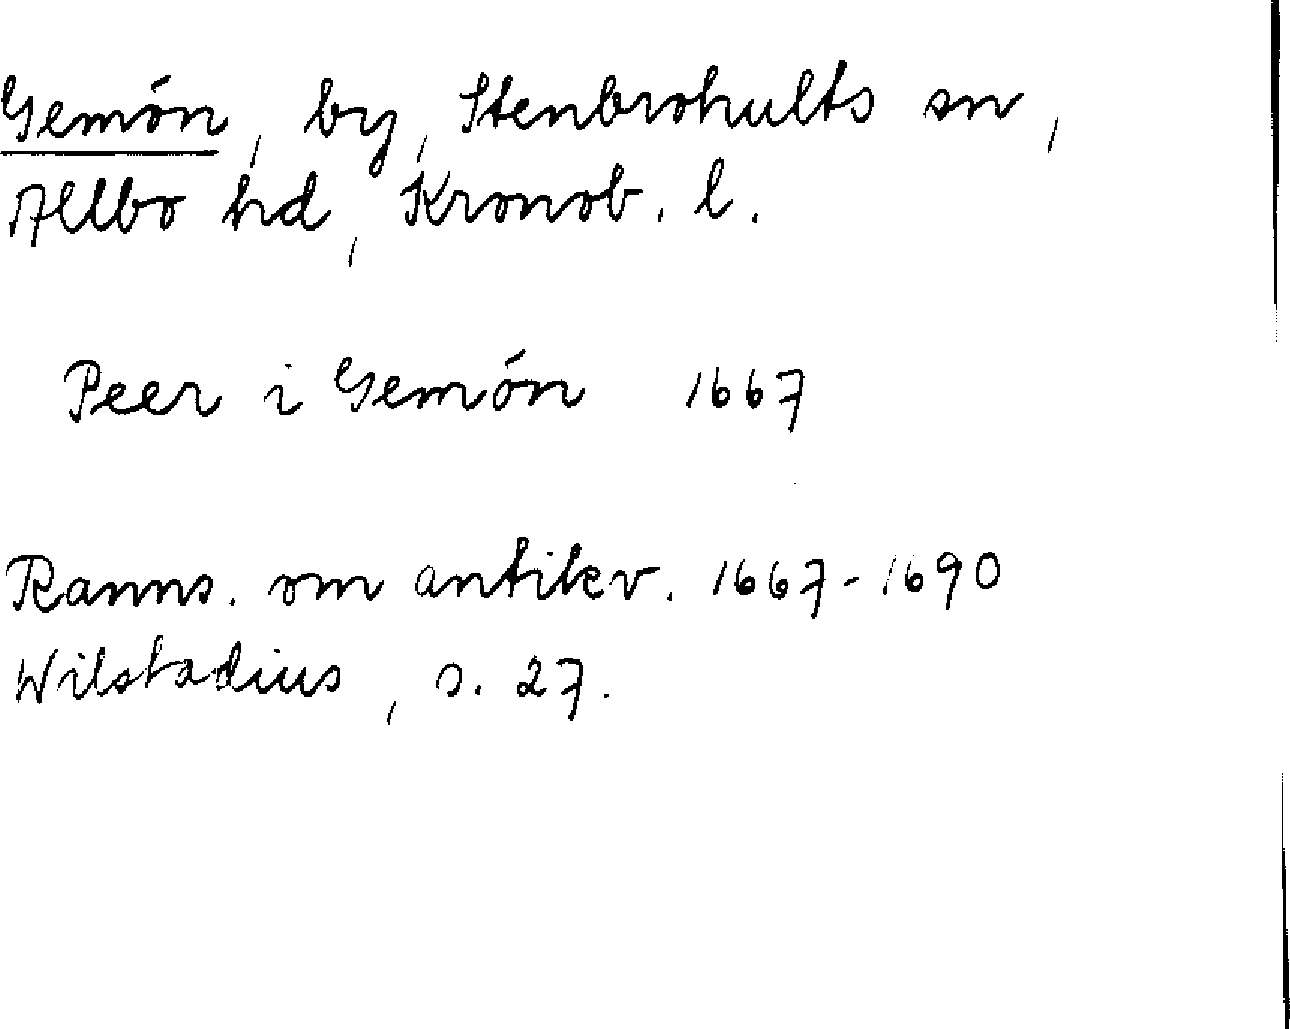 Gemön, by, Stenbrohults sn,
Allbo hd, Kronob. l.
Peer i Gemön 1667
Ranns. om antikv. 1667-1690
Wilstadius, s. 27.